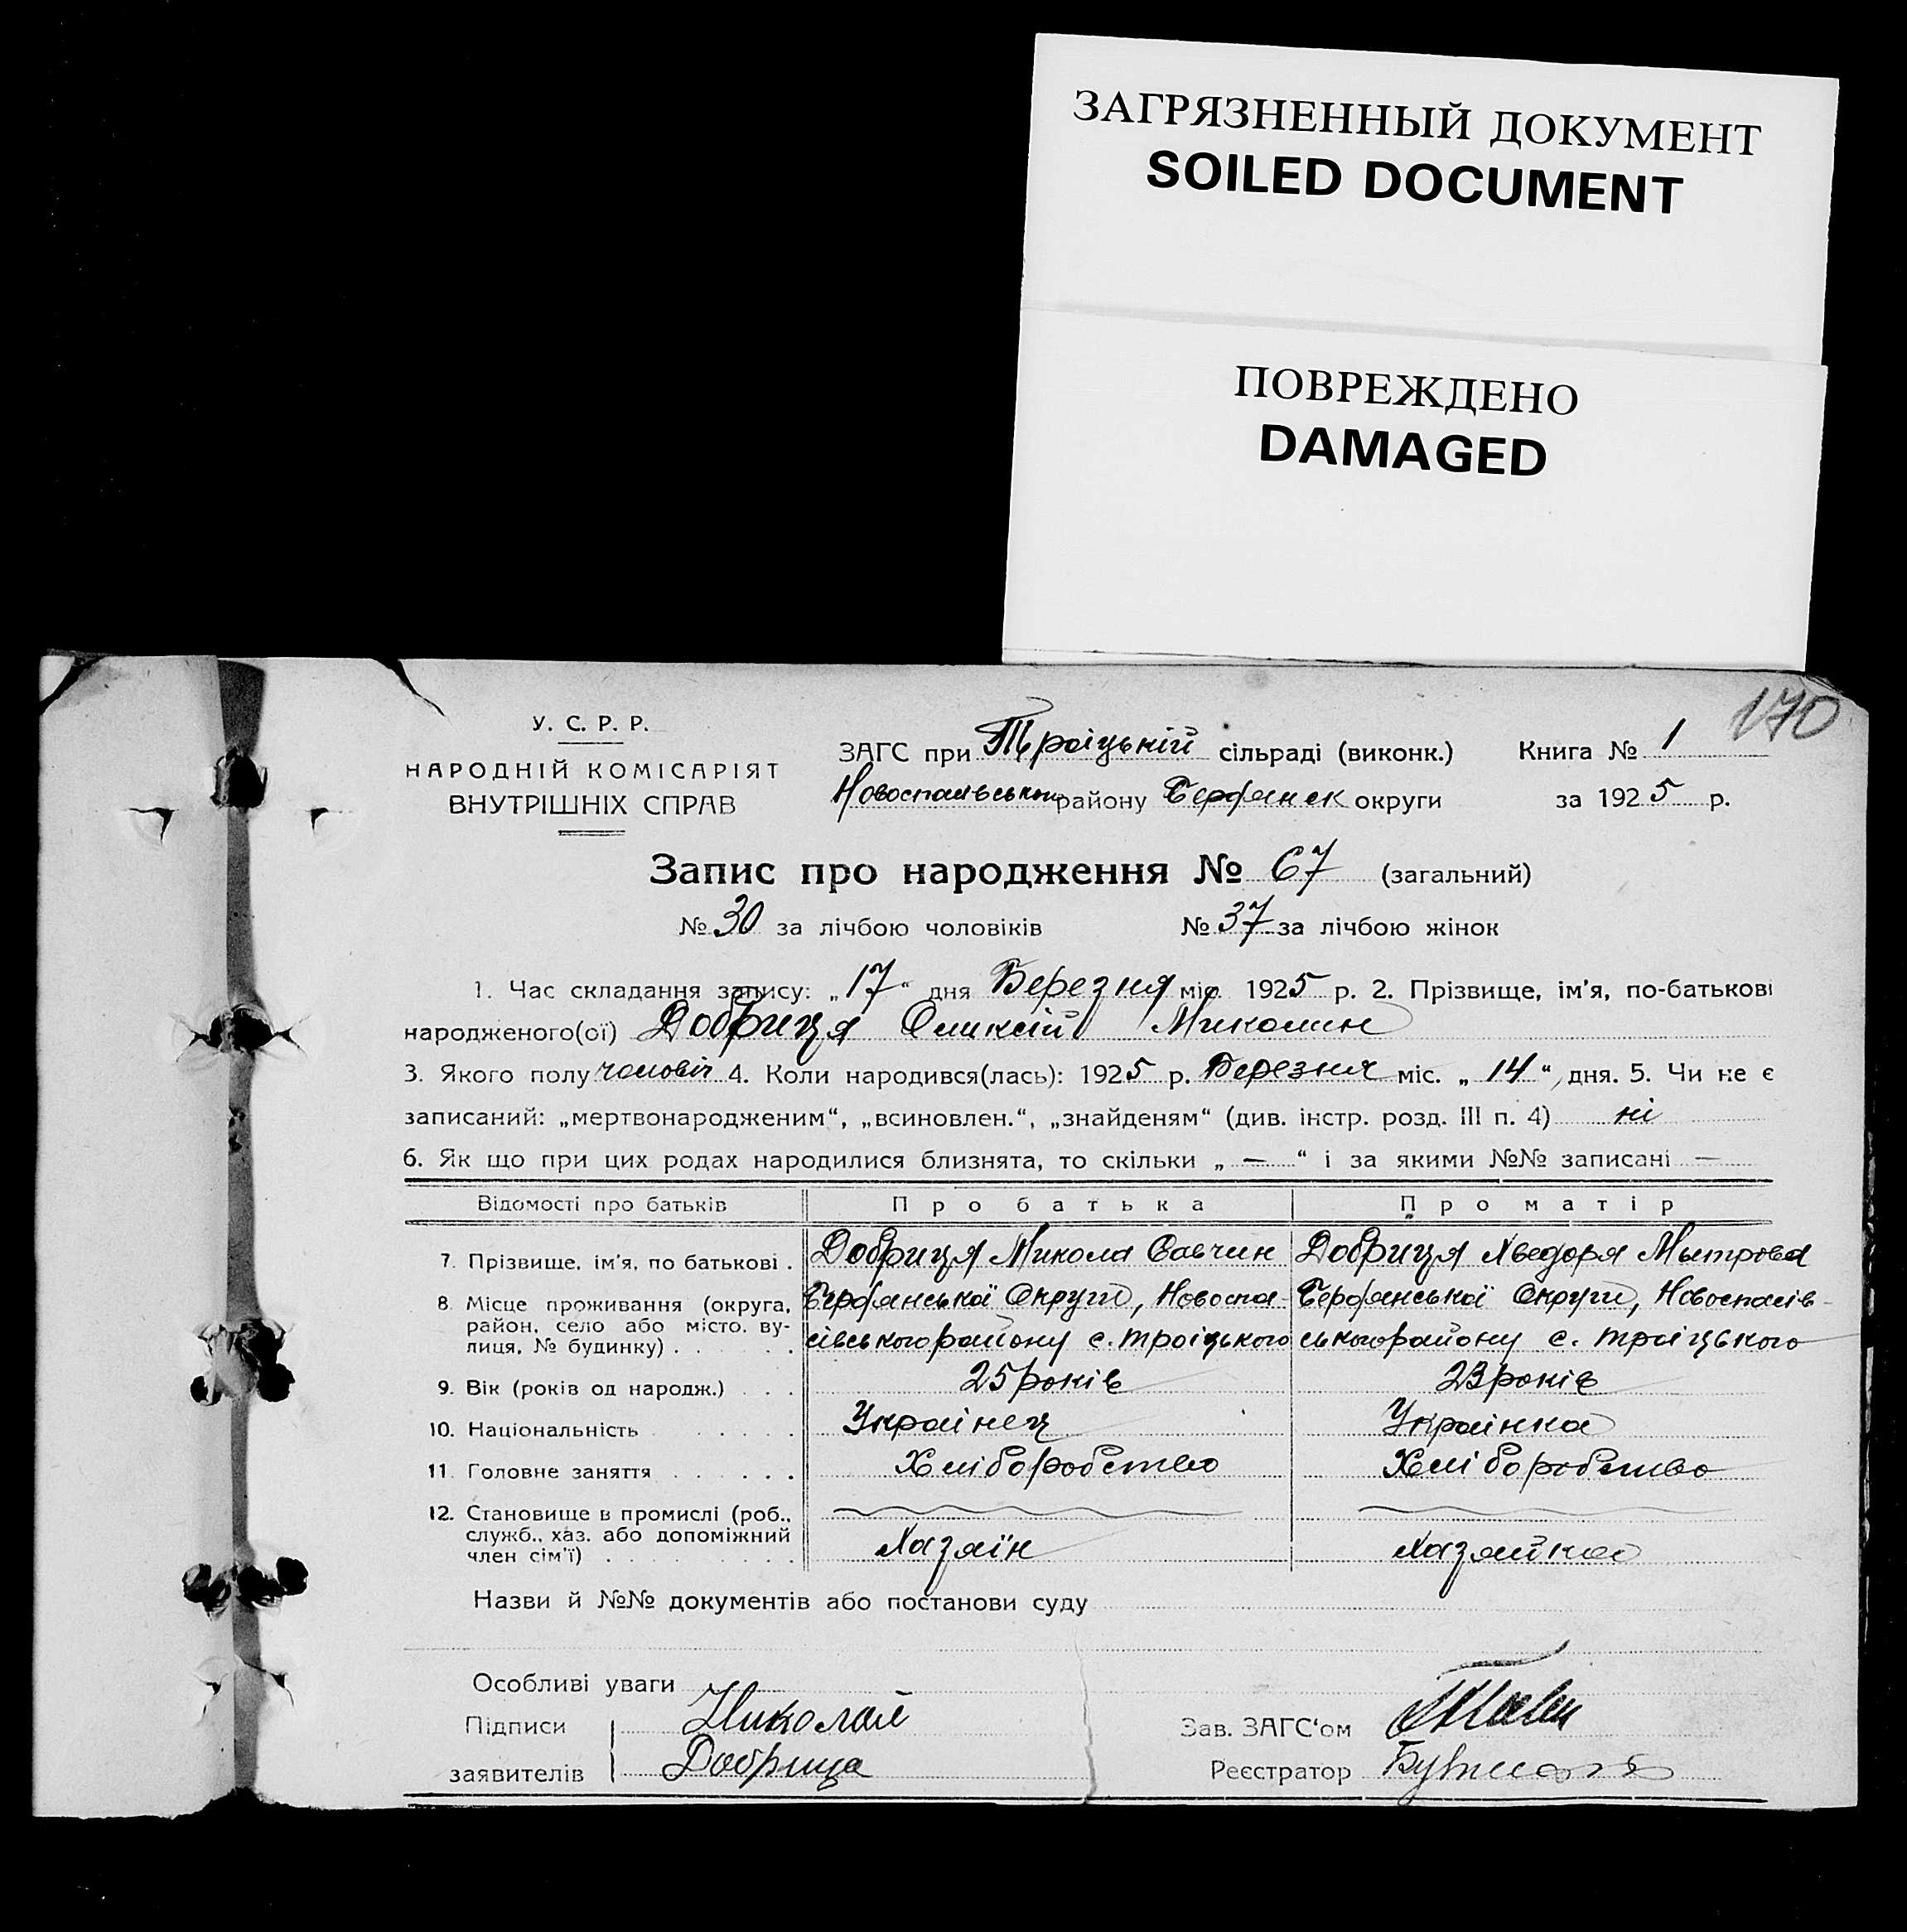 ЗАГРЯЗНЕННЫЙ ДОКУМЕНТ
SOILED DOCUMENT
ПОВРЕЖДЕНО
DAMAGED
170
У. С. Р. Р.
НАРОДНІЙ КОМІСАРІЯТ
ВНУТРІШНІХ СПРАВ
ЗАГС при Троіцькій сільраді (виконк.) Книга № 1
району Бердянск округи за 1925 р.
Запис про народження № 67 (загальний)
№ 30 за лічбою чоловіків № 37 за лічбою жінок
1. Час складання запису: „17“ дня Березня міс. 1925 р. 2. Прізвище, ім'я, по-батькові
народженого(ої) Добриця Оликсій Миколин
3. Якого полу чоловіч 4. Коли народився(лась): 1925 р. Березня міс. „14“, дня. 5. Чи не є
записаний: „мертвонародженим“, „всиновлен.“, „знайденям“ (див. інстр. розд. III п. 4) ні
6. Як що при цих родах народилися близнята, то скільки „ — “ і за якими №№ записані —
Відомості про батьків Про батька Про матір
7. Прізвище, ім'я, по батькові . Добриця Микола Савчин Добриця Хведоря Мытрова
8. Місце проживання (округа, район, село або місто, вулиця, № будинку) . . . . . . Бердянської Округи, Новоспасівського району с. Троіцького Бердянської Округи, Новоспасівського району с. Троіцького
9. Вік (років од народж.) . . . 25 років 23 років
10. Національність . . . . . . Украінец Украінка
11. Головне заняття . . . . . . Хліборобство Хліборобство
12. Становище в промислі (роб., служб., хаз. або допоміжний член сім'ї) . . . . . . . . . Хазяїн Хазяйка
Назви й №№ документів або постанови суду
Особливі уваги
Підписи Николай
заявителів Добрица
Зав. ЗАГС'ом
Реєстратор